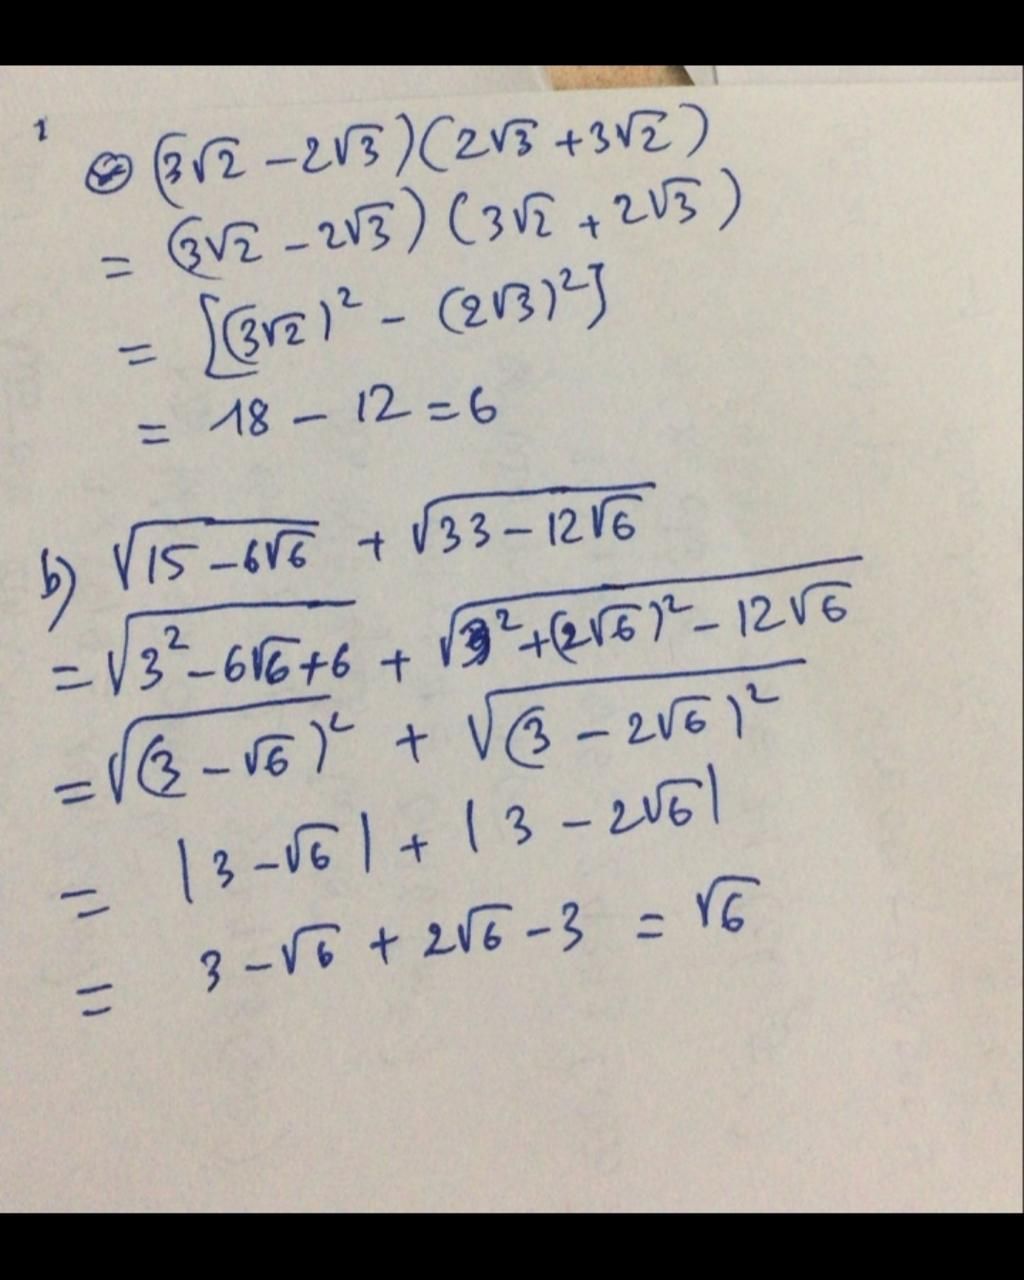 1
(3√2 - 2√3)(2√3 + 3√2)
= (3√2 - 2√3)(3√2 + 2√3)
= [(3√2)² - (2√3)²]
= 18 - 12 = 6
b) √(15 - 6√6) + √(33 - 12√6)
= √(3² - 6√6 + 6) + √(3² + (2√6)² - 12√6)
= √(3 - √6)² + √(3 - 2√6)²
= |3 - √6| + |3 - 2√6|
= 3 - √6 + 2√6 - 3 = √6